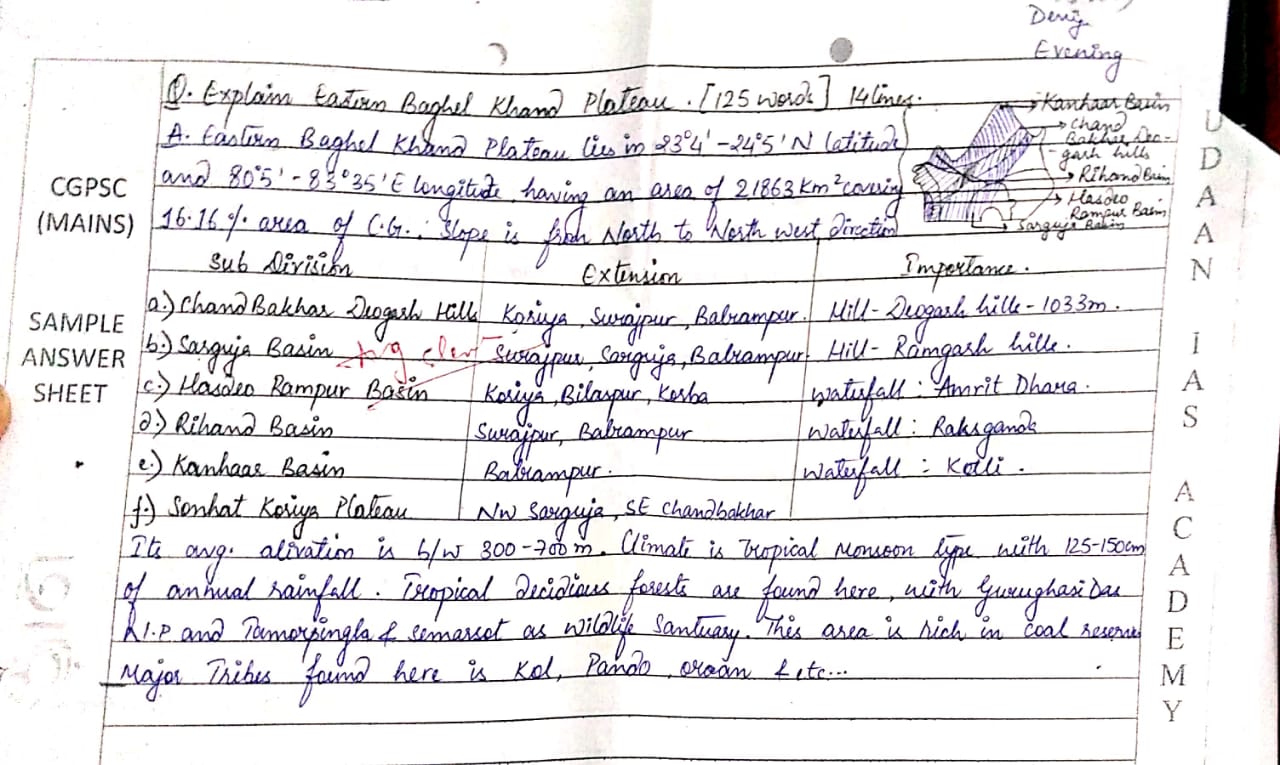 Evening
Q. Explain Eastern Baghel Khand Plateau. [125 words] 14 lines.
A. Eastern Baghel Khand Plateau lies in 23°4' - 24°5' N latitude
and 80°5' - 83°35' E longitude, having an area of 21863 Km² covering
16.16 % area of C.G.. Slope is from North to North west direction
Kanhaar Basin
Chand
Bakhar Deo-
garh hills
Rihand Basin
Hasdeo
Rampur Basin
Sarguja Basin
Sub Division Extension Importance.
a.) Chand Bakhar Deogarh Hills Koriya, Surajpur, Balrampur. Hill- Deogarh hills - 1033m.
b.) Sarguja Basin Surajpur, Sarguja, Balrampur Hill- Ramgarh hills.
c.) Hasdeo Rampur Basin Koriya, Bilaspur, Korba Waterfall : Amrit Dhara.
d.) Rihand Basin Surajpur, Balrampur Waterfall : Raksganda
e.) Kanhaar Basin Balrampur. Waterfall : Kotli.
f.) Sonhat Koriya Plateau NW Sarguja, SE Chandbakhar
Its avg. alivation is b/w 300-700 m. Climate is Tropical Monsoon type with 125-150cm
of annual rainfall. Tropical decidious forests are found here, with Gurughasi Das
N.P and Tamorpingla & Semarsot as Wildlife Santuary. This area is rich in coal reserve
Major Tribes found here is Kol, Pando, oraon & etc...
CGPSC
(MAINS)
SAMPLE
ANSWER
SHEET
UDAAN IAS ACADEMY